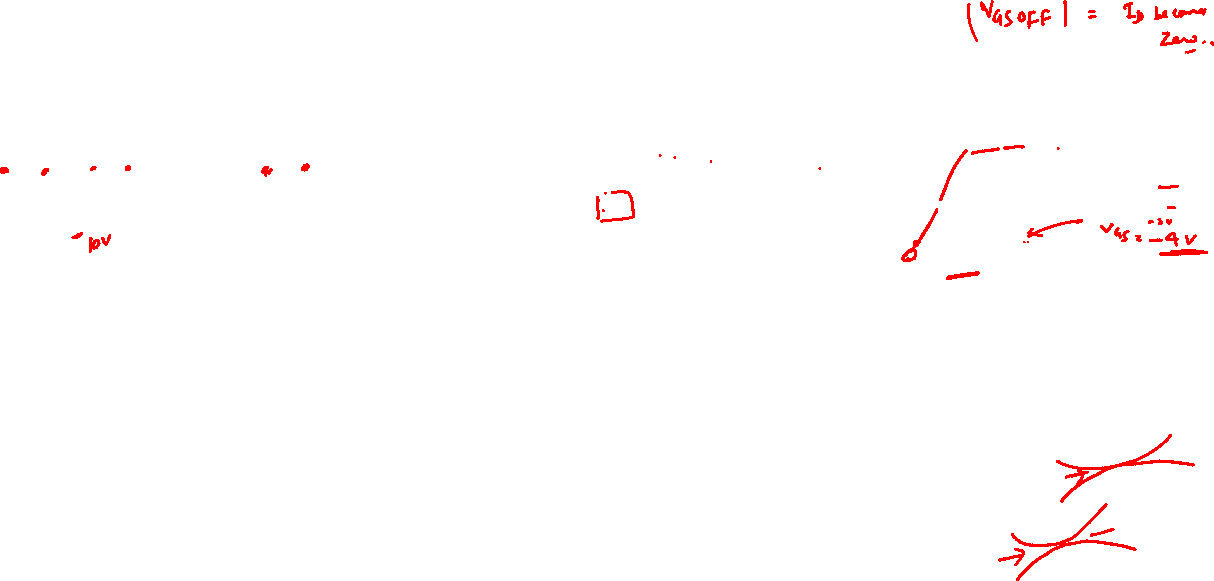 |V_GSOFF| = I_D become
Zero..
-10V
-3V
V_GS = -4V